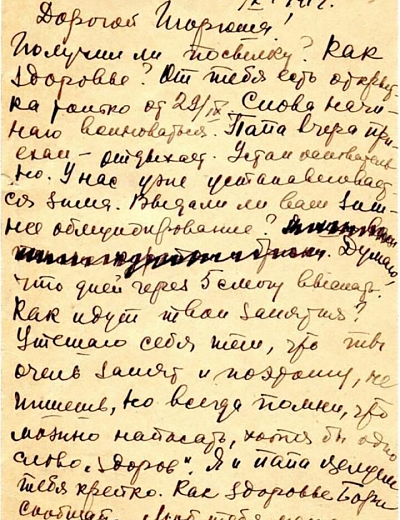 Дорогой Игорюша!
Получил ли посылку? Как
здоровье? От тебя есть открыт-
ка только от 29/IX. Снова начи-
наю волноваться. Папа вчера при-
ехал – отдыхает. Устал основатель-
но. У нас уже устанавливает-
ся зима. Выдали ли вам зим-
нее обмундирование?
Думаю,
что дней через 5 смогу выслать.
Как идут твои занятия?
Утешаю себя тем, что ты
очень занят и поэтому, не
пишешь, но всегда помни, что
можно написать, хотя бы одно
слово „здоров". Я и папа целуем
тебя крепко. Как здоровье Бори
сообщай.